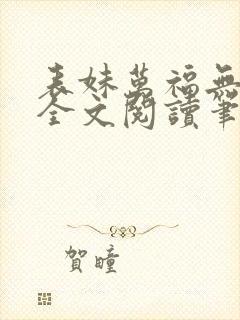 表妹萬福無
全文閱讀筆
賀瞳